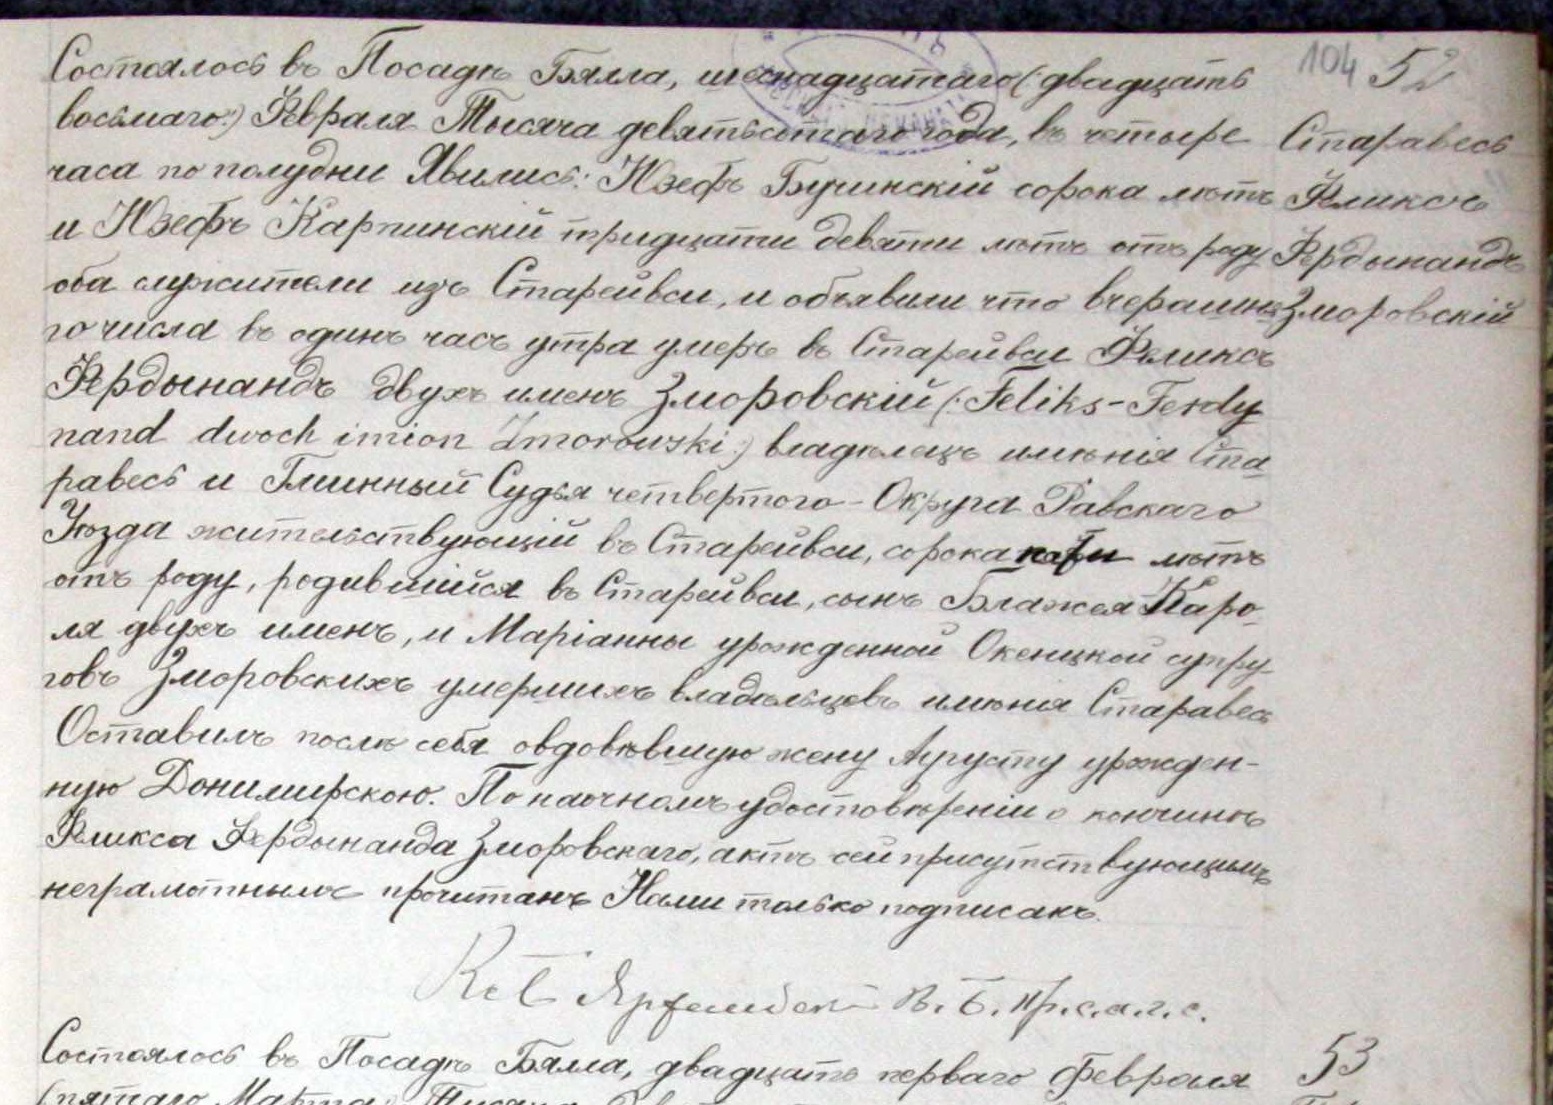 104 52
Состоялось въ Посадѣ Бялла, шеснадцатаго (двадцать
восьмаго:) Февраля Тысяча девятьсотаго года, въ четыре
Старавесь
часа по полудни Явились: Юзефъ Бучинскій сорока лѣтъ
Феликсъ
и Юзефъ Карпинскій тридцати девяти лѣтъ отъ роду
Фердынандъ
оба служители изъ Старейвси, и объявили что вчерашня
Зморовскій
го числа въ одинъ часъ утра умеръ въ Старейвси Феликсъ
Фердынандъ двухъ именъ Зморовскій (:Feliks-Ferdy
nand dwoch imion Zmorowski:) владѣлецъ имѣнія Ста
равесь и Гминный Судья четвертого-Округа Равскаго
Уѣзда жительствующій въ Старейвси, сорока пяти лѣтъ
отъ роду, родившійся въ Старейвси, сынъ Блажея Каро
ля двухъ именъ, и Маріанны урожденной Окенцкой супру
говъ Зморовскихъ умершихъ владѣльцевъ имѣнія Старавесь
Оставилъ послѣ себя овдовѣвшую жену Августу урожден-
ную Донимирскою. По наочномъ удостовѣреніи о кончинѣ
Феликса Фердынанда Зморовскаго, актъ сей присутствующимъ
неграмотнымъ прочитанъ Нами только подписанъ.
В. Б. пр. с. а. г. с.
Состоялось въ Посадѣ Бяла, двадцать перваго Февраля
53
(пятаго Марта) Тысяча